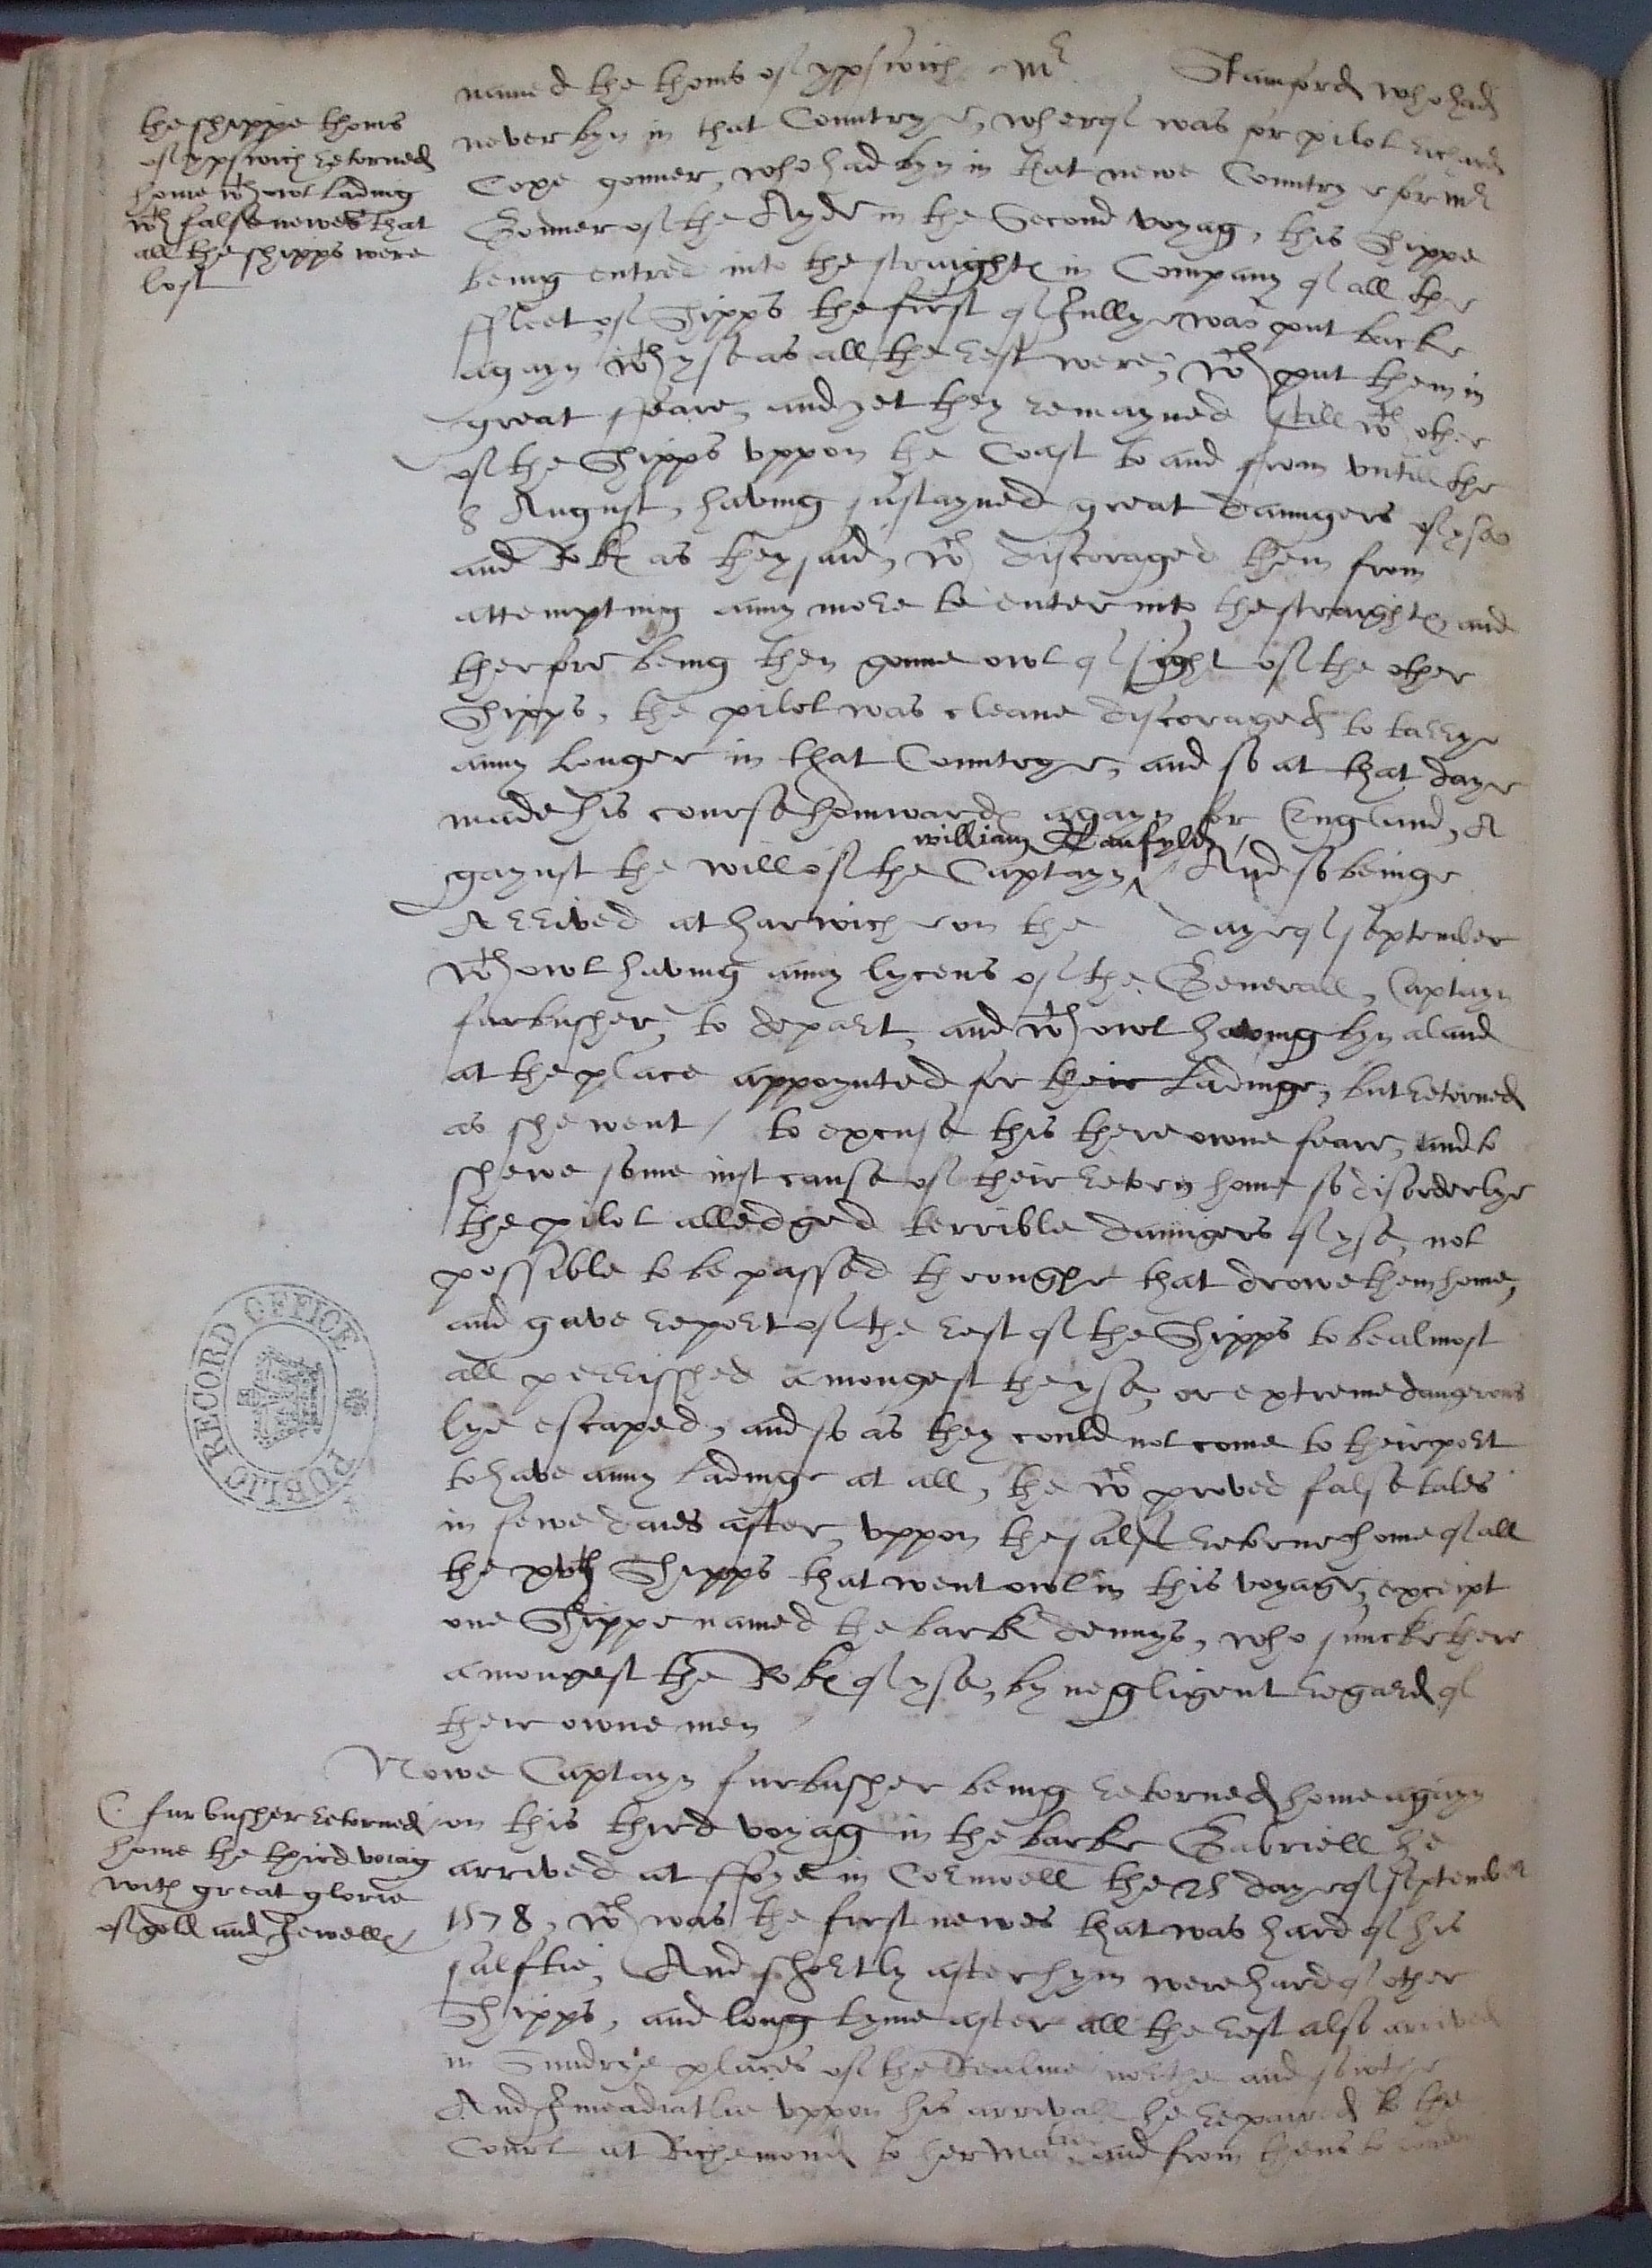 named the thoms of ypswich Mr Stamford who had
never byn in that Countrye, wherof was for pilot Richard
Coxe gonner, who had byn in that newe Countrye for Mr
Gonner of the Ayde in the Second voyag, this Shippe
being entred into the straights in Company of all the
ffleet of Shipps the first of Jullye was put backe
agayn wth yse as all the rest were, wch put them in
great feare, and yet they remayned still wth other
of the Shipps vppon the Coast to and from vntill the
8 August, having sustayned great daungers of yse
and Roks as they said, wch discoraged them from
attempting anny more to enter into the straights, and
therfore being then gonne owt of sight of the other
Shipps, the pilot was cleane discoraged to tarrye
anny longer in that Countrye, and so at that daye
made his course homwards agayn for England, A
gaynst the will of the Captayn william Tanfyld, And so beinge
Arrived at harwiche on the daye of September
wthowt having anny lycens of the Generall, Captayn
furbusher, to depart, and wthowt having byn aland
at the place appoynted for their Ladinge, but retorned
as she went / to excuse this there owne feare, and to
shewe some iust cause of their retorn home so disorderlye
the pilot alledged terrible daungers of yse, not
possible to be passed throughe that drowe them home,
and gave report of the rest of the Shipps to be almost
all perrisshed amongest the yse, or extreme dangerous
lye escaped, and so as they could not come to their port
to have anny Ladinge at all, the wch proved false tales
in fewe daies after, vppon the salf retorne home of all
the xvth Shipps that went owt in this voyage, except
one Shippe named the bark dennys, who suncke there
amongest the Roks of yse, by negligent regard of
their owne men
Nowe Captayn furbusher being retorned home agayn
on this third voyag in the barke Gabriell he
arrived at ffoye in Cornwell the 25 daye of september
1578, wch was the first newes that was hard of his
salftie, And shortly after hym were hard of other
Shipps, and long tyme after all the rest also arrived
in Sundrie places of the Realme northe and sowthe
And Immeadiatlie vppon his arrivall he repaired to the
Court at Richemond to her Matie and from thens to
the shippe thoms
of ypswich retorned
home wthowt Lading
wth false newes that
all the shipps were
lost
PUBLIC RECORD OFFICE
C. furbusher retorned
home the third voiag
with great glorie
of gold and Jewells